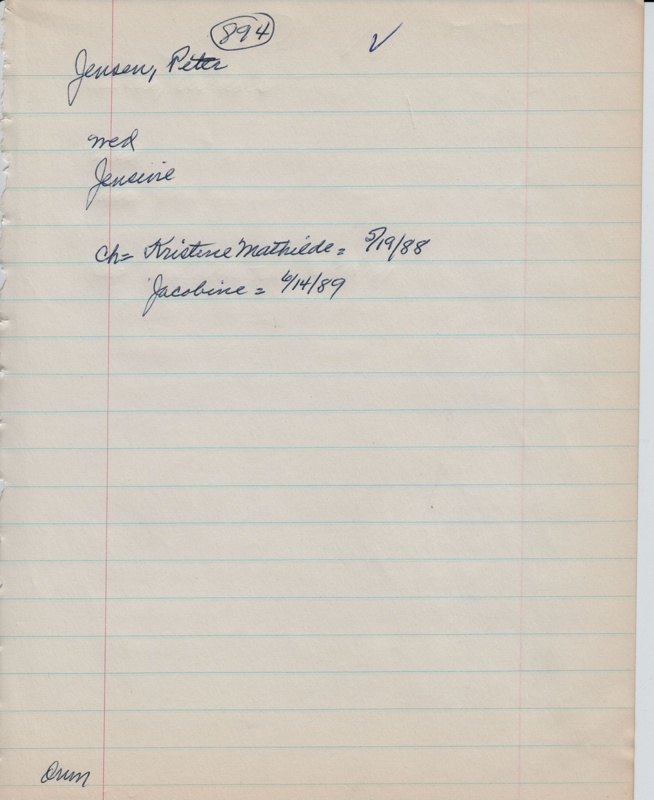 894
Jensen, Peter
wed
Jensine
ch= Kristine Mathilde = 5/19/88
Jacobine = 6/14/89